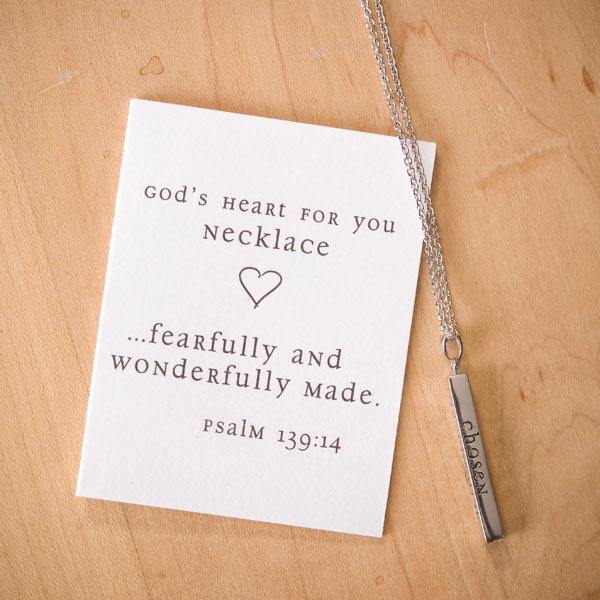 God's Heart for you
Necklace
...fearfully and
wonderfully made.
Psalm 139:14
chosen